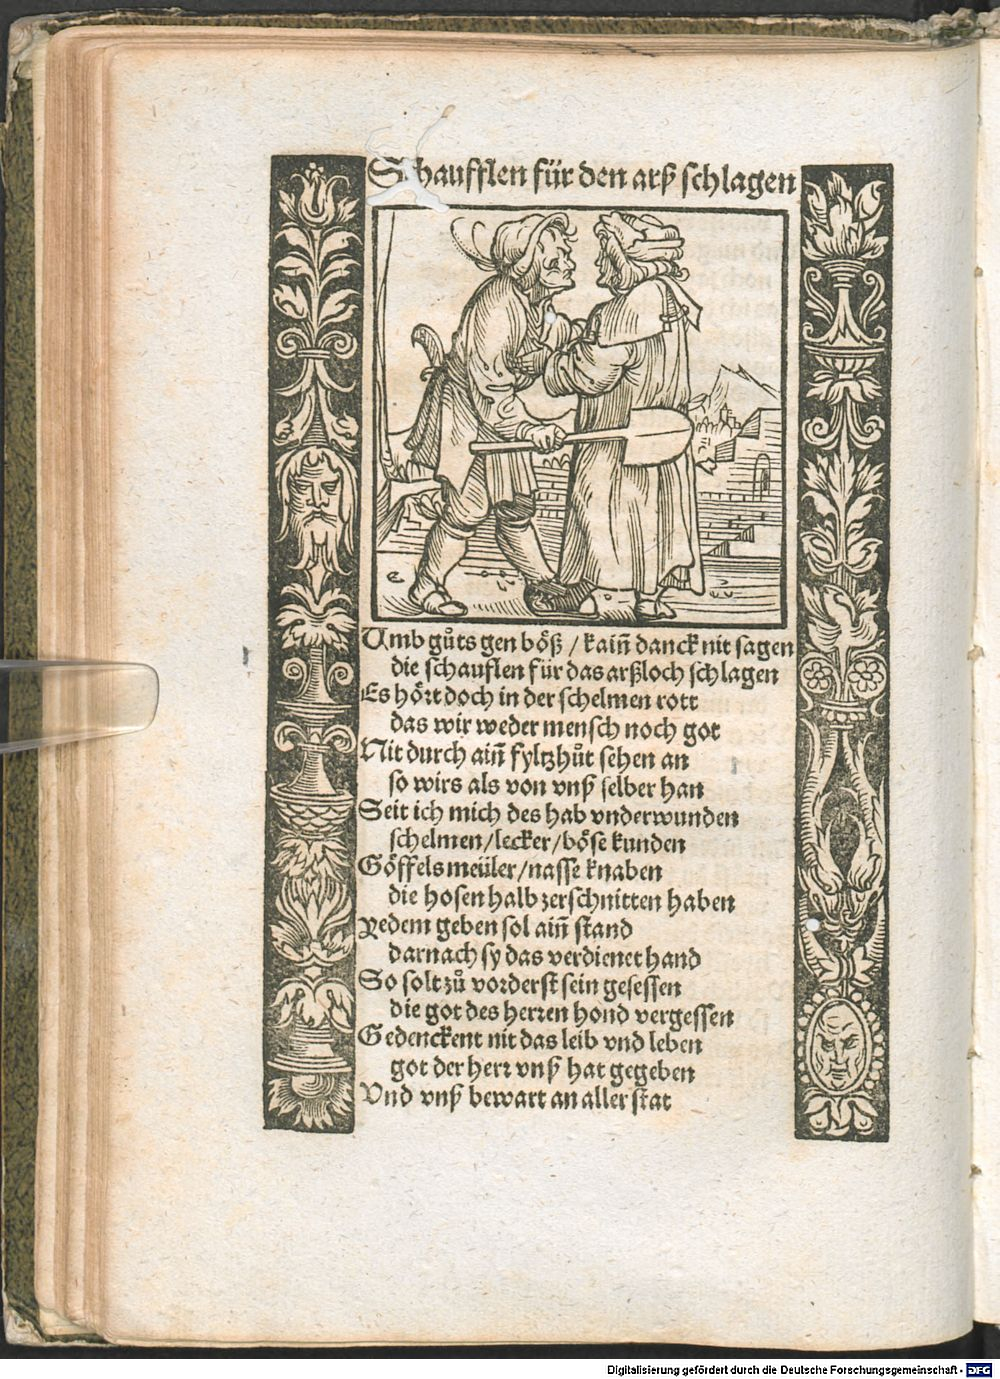 Schaufflen für den arß schlagen
Umb gůts gen böß / kain̄ danck nit sagen
die schauflen für das arßloch schlagen
Es hört doch in der schelmen rott
das wir weder mensch noch got
Nit durch ain̄ fyltzhůt sehen an
so wirs als von vnß selber han
Seit ich mich des hab vnderwunden
schelmen/lecker/böse kunden
Göffels meüler/nasse knaben
die hosen halb zerschnitten haben
Yedem geben sol ain̄ stand
darnach sy das verdienet hand
So solt zů vorderst sein gesessen
die got des herren hond vergessen
Gedenckent nit das leib vnd leben
got der herr vnß hat gegeben
Vnd vnß bewart an aller stat
Digitalisierung gefördert durch die Deutsche Forschungsgemeinschaft - DFG